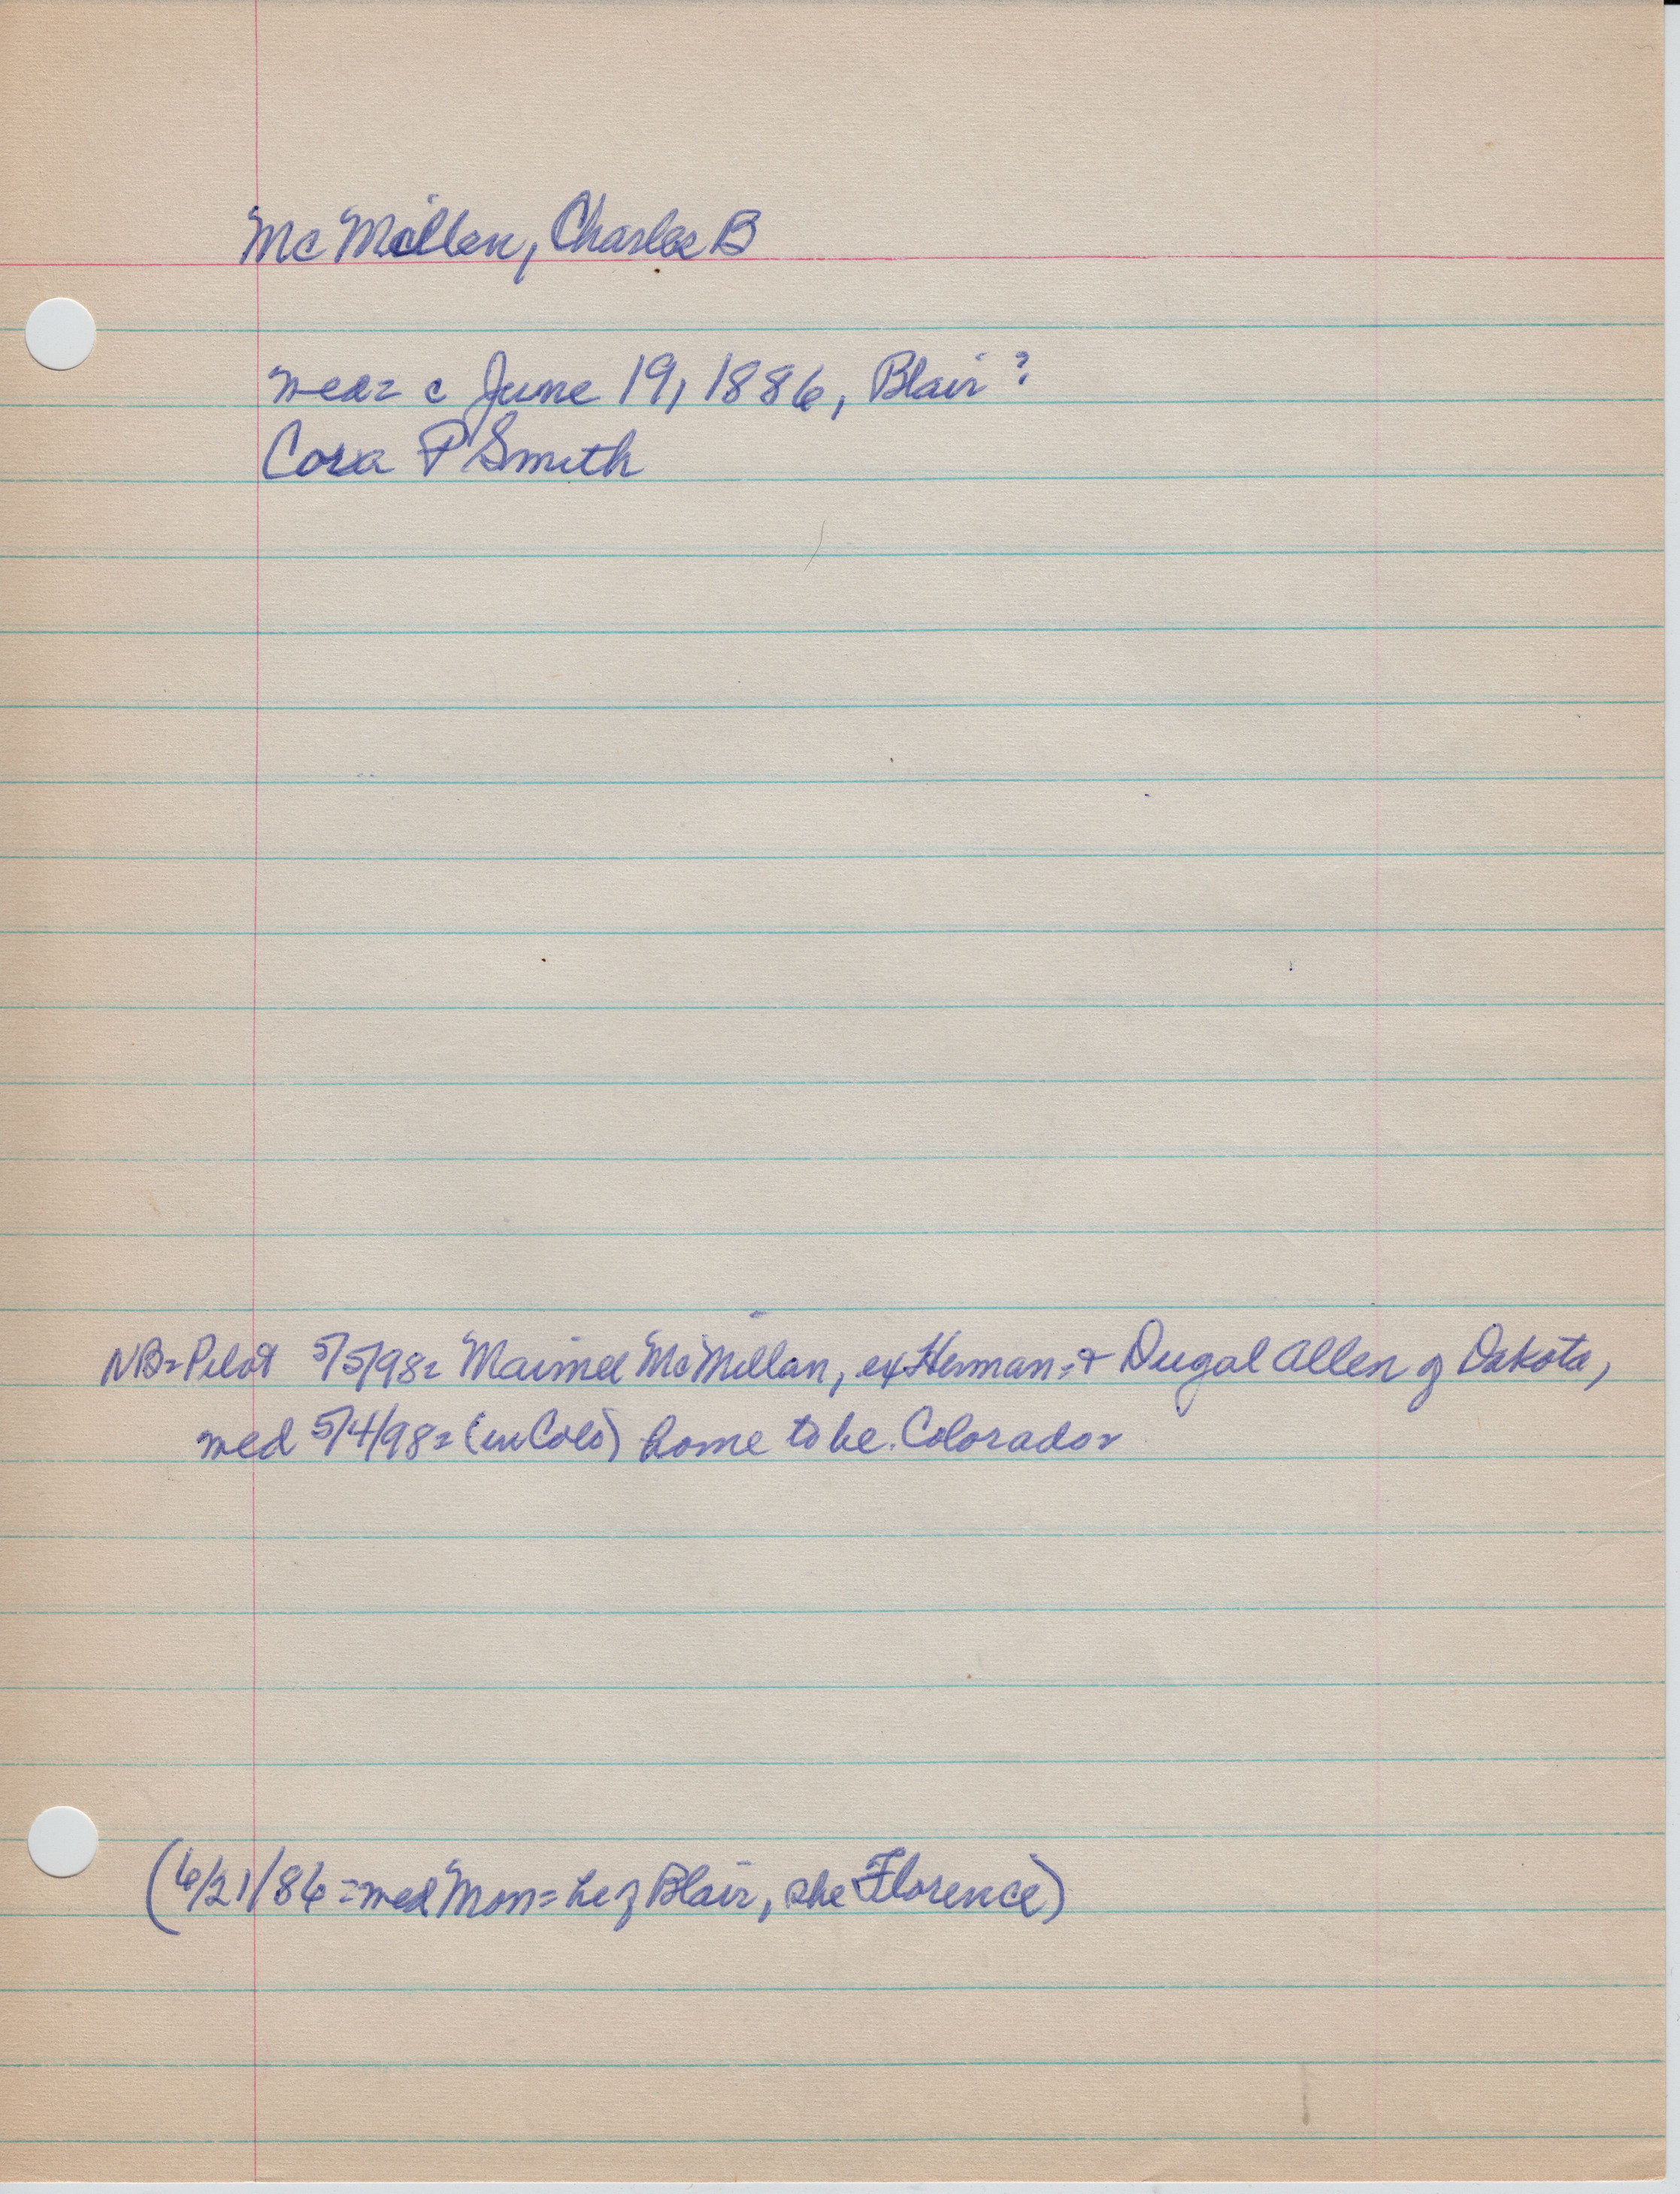 McMillen, Charles B
med= c June 19, 1886, Blair?
Cora P Smith
NB=Pilot 5/5/98= Maimee McMillan, ex Herman=& Dugal Allen of Dakota,
med 5/4/98=(in Colo) home to be Colorado=
(6/21/86=med Mon=he of Blair, she Florence)